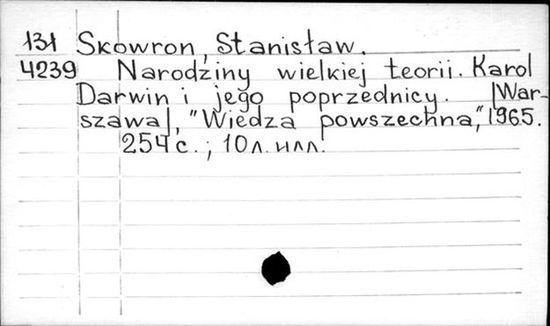 131 Skowron, Stanisław.
4239 Narodziny wielkiej teorii. Karol
Darwin i jego poprzednicy. |War-
szawa|, "Wiedza powszechna", 1965.
254 с. ; 10 л. илл.